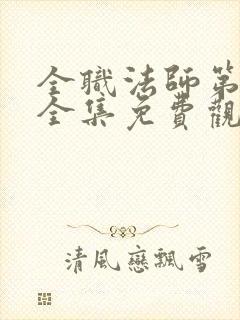 全職法師第
全集免費觀
清風戀飄雪